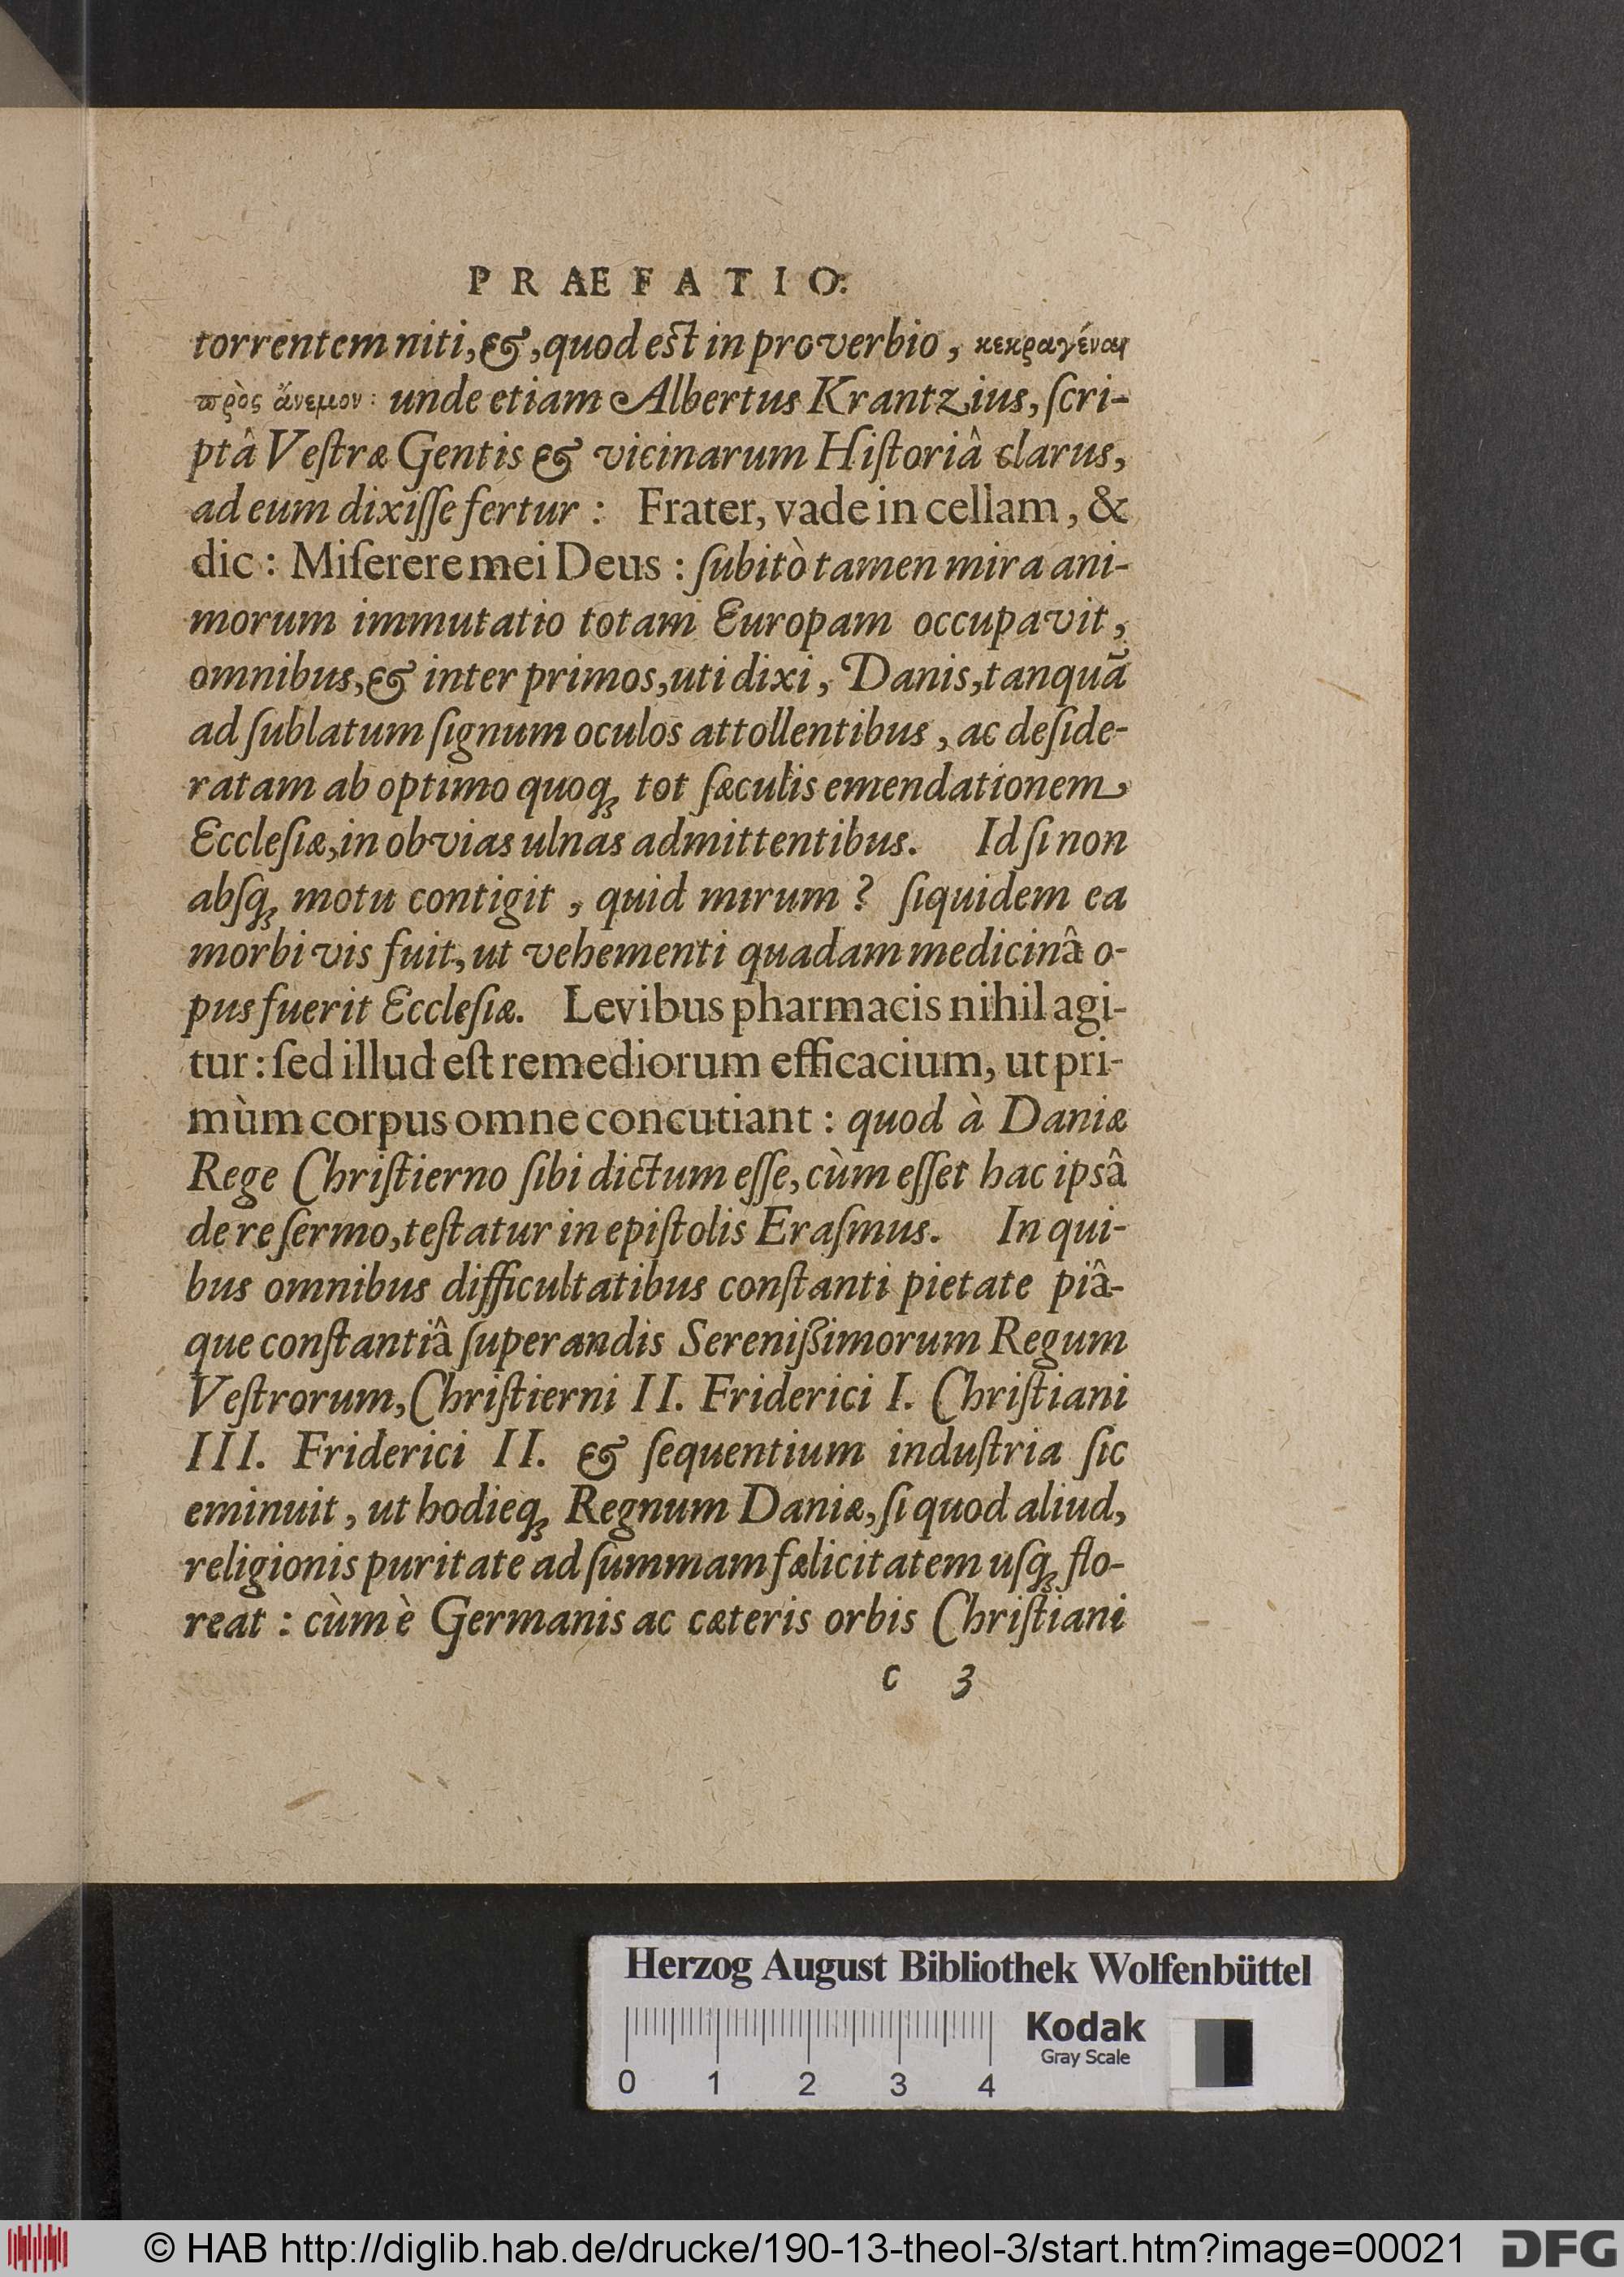 PRÆFATIO.
torrentem niti, &, quod est in proverbio, κεκραγέναι
πρὸς ἄνεμον: unde etiam Albertus Krantzius, ſcri-
ptâ Veſtræ Gentis & vicinarum Hiſtoriâ clarus,
ad eum dixiſſe fertur: Frater, vade in cellam, &
dic: Miſerere mei Deus: ſubitò tamen mira ani-
morum immutatio totam Europam occupavit,
omnibus, & inter primos, uti dixi, Danis, tanquã
ad ſublatum ſignum oculos attollentibus, ac deſide-
ratam ab optimo quoq; tot ſæculis emendationem
Eccleſiæ, in obvias ulnas admittentibus. Id ſi non
abſq; motu contigit, quid mirum? ſiquidem ea
morbi vis fuit, ut vehementi quadam medicinâ o-
pus fuerit Eccleſiæ. Levibus pharmacis nihil agi-
tur: ſed illud eſt remediorum efficacium, ut pri-
mùm corpus omne concutiant: quod à Daniæ
Rege Chriſtierno ſibi dictum eſſe, cùm eſſet hac ipsâ
de re ſermo, teſtatur in epiſtolis Eraſmus. In qui-
bus omnibus difficultatibus conſtanti pietate piâ-
que conſtantiâ ſuperandis Sereniſſimorum Regum
Veſtrorum, Chriſtierni II. Friderici I. Chriſtiani
III. Friderici II. & ſequentium induſtria ſic
eminuit, ut hodieq; Regnum Daniæ, ſi quod aliud,
religionis puritate ad ſummam fælicitatem uſq; flo-
reat: cùm è Germanis ac cæteris orbis Chriſtiani
c 3
Herzog August Bibliothek Wolfenbüttel
Kodak
Gray Scale
0 1 2 3 4
© HAB http://diglib.hab.de/drucke/190-13-theol-3/start.htm?image=00021
DFG